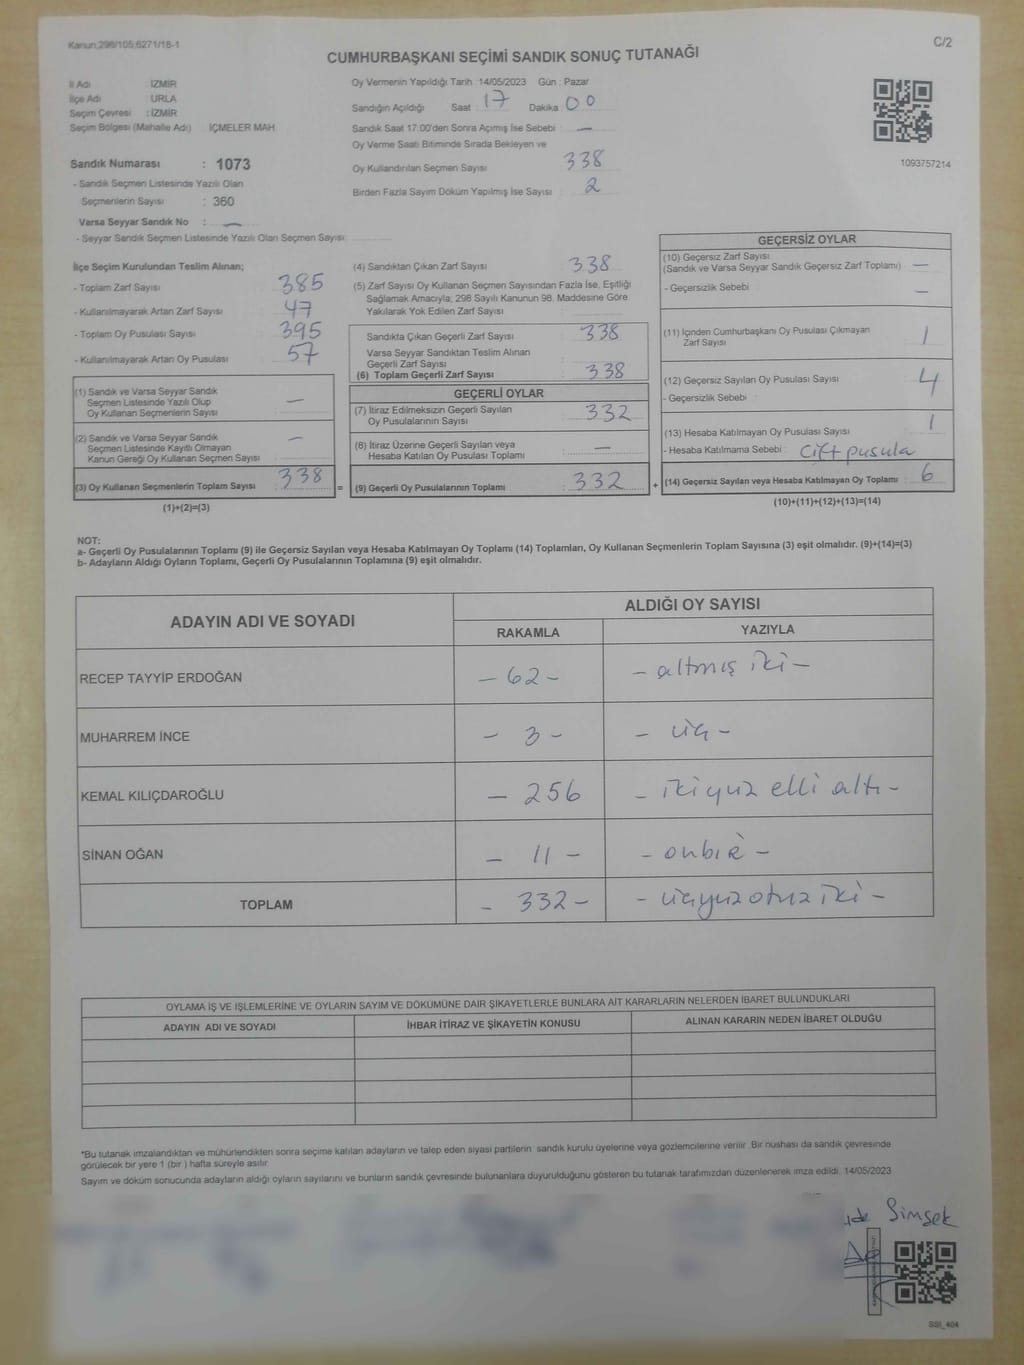 Kanun;298/105;6271/18-1
C/2
CUMHURBAŞKANI SEÇİMİ SANDIK SONUÇ TUTANAĞI
İl Adı İZMİR
İlçe Adı URLA
Seçim Çevresi : İZMİR
Seçim Bölgesi (Mahalle Adı) İÇMELER MAH.
Sandık Numarası : 1073
- Sandık Seçmen Listesinde Yazılı Olan
Seçmenlerin Sayısı : 360
Varsa Seyyar Sandık No : —
- Seyyar Sandık Seçmen Listesinde Yazılı Olan Seçmen Sayısı:
Oy Vermenin Yapıldığı Tarih :14/05/2023 Gün : Pazar
Sandığın Açıldığı Saat 17 Dakika 00
Sandık Saat 17:00'den Sonra Açımış İse Sebebi : —
Oy Verme Saati Bitiminde Sırada Bekleyen ve
Oy Kullandırılan Seçmen Sayısı 338
Birden Fazla Sayım Döküm Yapılmış İse Sayısı 2
1093757214
İlçe Seçim Kurulundan Teslim Alınan;
- Toplam Zarf Sayısı 385
- Kullanılmayarak Artan Zarf Sayısı 47
- Toplam Oy Pusulası Sayısı 395
- Kullanılmayarak Artan Oy Pusulası 57
(1) Sandık ve Varsa Seyyar Sandık
Seçmen Listesinde Yazılı Olup
Oy Kullanan Seçmenlerin Sayısı —
(2) Sandık ve Varsa Seyyar Sandık
Seçmen Listesinde Kayıtlı Olmayan
Kanun Gereği Oy Kullanan Seçmen Sayısı —
(3) Oy Kullanan Seçmenlerin Toplam Sayısı 338
(1)+(2)=(3)
=
(4) Sandıktan Çıkan Zarf Sayısı 338
(5) Zarf Sayısı Oy Kullanan Seçmen Sayısından Fazla İse, Eşitliği
Sağlamak Amacıyla; 298 Sayılı Kanunun 98. Maddesine Göre
Yakılarak Yok Edilen Zarf Sayısı :
Sandıkta Çıkan Geçerli Zarf Sayısı 338
Varsa Seyyar Sandıktan Teslim Alınan
Geçerli Zarf Sayısı
(6) Toplam Geçerli Zarf Sayısı 338
GEÇERLİ OYLAR
(7) İtiraz Edilmeksizin Geçerli Sayılan
Oy Pusulalarının Sayısı 332
(8) İtiraz Üzerine Geçerli Sayılan veya
Hesaba Katılan Oy Pusulası Toplamı —
(9) Geçerli Oy Pusulalarının Toplamı 332
+
GEÇERSİZ OYLAR
(10) Geçersiz Zarf Sayısı
(Sandık ve Varsa Seyyar Sandık Geçersiz Zarf Toplamı) —
- Geçersizlik Sebebi —
(11) İçinden Cumhurbaşkanı Oy Pusulası Çıkmayan
Zarf Sayısı 1
(12) Geçersiz Sayılan Oy Pusulası Sayısı 4
- Geçersizlik Sebebi
(13) Hesaba Katılmayan Oy Pusulası Sayısı 1
- Hesaba Katılmama Sebebi : Çift pusula
(14) Geçersiz Sayılan veya Hesaba Katılmayan Oy Toplamı 6
(10)+(11)+(12)+(13)=(14)
NOT:
a- Geçerli Oy Pusulalarının Toplamı (9) ile Geçersiz Sayılan veya Hesaba Katılmayan Oy Toplamı (14) Toplamları, Oy Kullanan Seçmenlerin Toplam Sayısına (3) eşit olmalıdır. (9)+(14)=(3)
b- Adayların Aldığı Oyların Toplamı, Geçerli Oy Pusulalarının Toplamına (9) eşit olmalıdır.
ADAYIN ADI VE SOYADI ALDIĞI OY SAYISI
RAKAMLA YAZIYLA
RECEP TAYYİP ERDOĞAN – 62 – – altmış iki –
MUHARREM İNCE – 3 – – üç –
KEMAL KILIÇDAROĞLU – 256 – ikiyuz elli altı –
SİNAN OĞAN – 11 – – onbir –
TOPLAM – 332 – – üçyuzotuziki –
OYLAMA İŞ VE İŞLEMLERİNE VE OYLARIN SAYIM VE DÖKÜMÜNE DAİR ŞİKAYETLERLE BUNLARA AİT KARARLARIN NELERDEN İBARET BULUNDUKLARI
ADAYIN ADI VE SOYADI İHBAR İTİRAZ VE ŞİKAYETİN KONUSU ALINAN KARARIN NEDEN İBARET OLDUĞU
*Bu tutanak imzalandıktan ve mühürlendikten sonra seçime katılan adayların ve talep eden siyasi partilerin sandık kurulu üyelerine veya gözlemcilerine verilir. Bir nüshası da sandık çevresinde
görülecek bir yere 1 (bir ) hafta süreyle asılır.
Sayım ve döküm sonucunda adayların aldığı oyların sayılarını ve bunların sandık çevresinde bulunanlara duyurulduğunu gösteren bu tutanak tarafımızdan düzenlenerek imza edildi. 14/05/2023
Şimşek
SSI_404